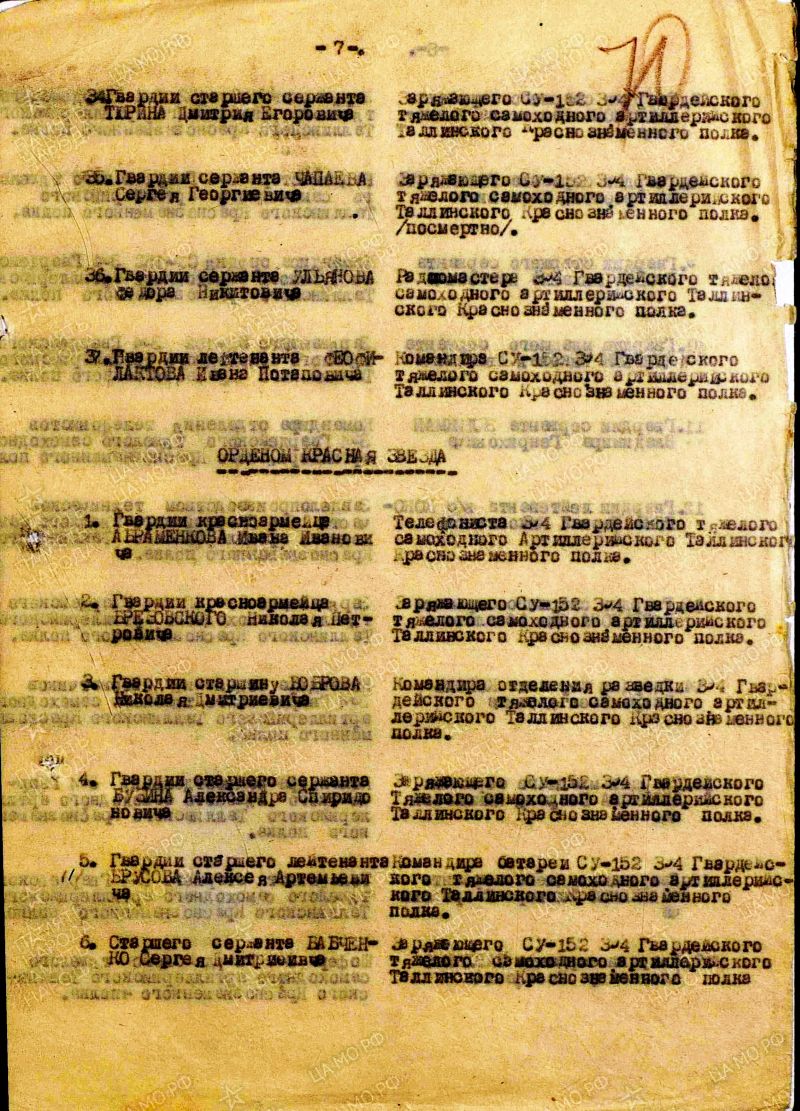 -7-.
34. Гвардии старшего сержанта Заряжающего СУ-152 394 Гвардейского
ТЮРИНА Дмитрия Егоровича тяжелого самоходного артиллерийского
Таллинского Краснознаменного полка.
35. Гвардии сержанта ЧАПАЕВА Заряжающего СУ-152 394 Гвардейского
Сергея Георгиевича тяжелого самоходного артиллерийского
Таллинского Краснознаменного полка.
/посмертно/.
36. Гвардии сержанта УЛЬЯНОВА Радиомастера 394 Гвардейского тяжело
Федора Никитовича самоходного артиллерийского Таллин-
ского Краснознаменного полка.
37. Гвардии лейтенанта ФЕОФИ- Командира СУ-152 394 Гвардейского
ЛАКТОВА Ивана Потаповича тяжелого самоходного артиллерийского
Таллинского Краснознаменного полка.
ОРДЕНОМ КРАСНАЯ ЗВЕЗДА
1. Гвардии красноармейца Телефониста 394 Гвардейского тяжелого
АБРАМЕНКОВА Ивана Иванови самоходного Артиллерийского Таллинского
ча Краснознаменного полка.
2. Гвардии красноармейца Заряжающего СУ-152 394 Гвардейского
БРЕЗОВСКОГО Николая Пет- тяжелого самоходного артиллерийского
ровича Таллинского Краснознаменного полка.
3. Гвардии старшину БОБРОВА Командира отделения разведки 394 Гвар-
Николая Дмитриевича дейского тяжелого самоходного артил-
лерийского Таллинского Краснознаменного
полка.
4. Гвардии старшего сержанта Заряжающего СУ-152 394 Гвардейского
БУЗИНА Александра Спиридо Тяжелого самоходного артиллерийского
новича Таллинского Краснознаменного полка.
5. Гвардии старшего лейтенанта Командира батареи СУ-152 394 Гвардейс-
БРУСОВА Алексея Артемьеви кого тяжелого самоходного артиллерийс-
ча кого Таллинского Краснознаменного
полка.
6. Старшего сержанта БАБЧЕН- Заряжающего СУ-152 394 Гвардейского
КО Сергея Дмитриевича тяжелого самоходного артиллерийского
Таллинского Краснознаменного полка